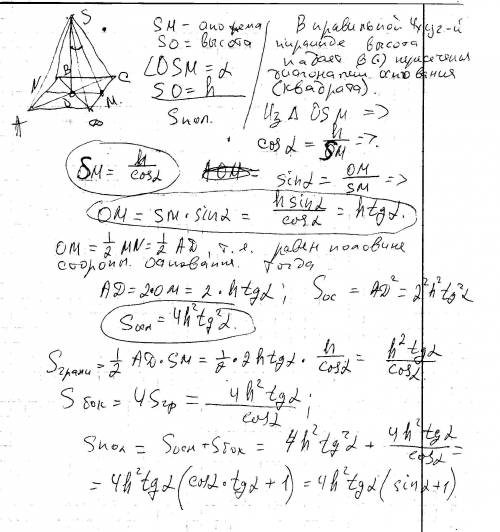 S
N
B
C
O
M
A
D
SM - апофема
SO = высота
∠OSM = α
SO = h
Sпол.
В правильной 4х уг-й
пирамиде высота
падает в (·) пересечения
диагонали основания
(квадрата).
Из Δ OSM =>
cosα = h/SM =>
SM = h/cosα
sinα = OM/SM =>
OM = SM · sinα = h sinα/cosα = h tgα.
OM = 1/2 MN = 1/2 AD, т.е. равен половине
стороны основания. Тогда
AD = 2·OM = 2·h tgα; Sос = AD² = 2²h²tg²α
Sосн = 4h²tg²α.
Sграни = 1/2 AD · SM = 1/2 · 2htgα · h/cosα = h²tgα/cosα
Sбок = 4Sгр = 4h²tgα/cosα;
Sпол = Sосн + Sбок = 4h²tg²α + 4h²tgα/cosα =
= 4h²tgα(cosα · tgα + 1) = 4h²tgα(sinα + 1)